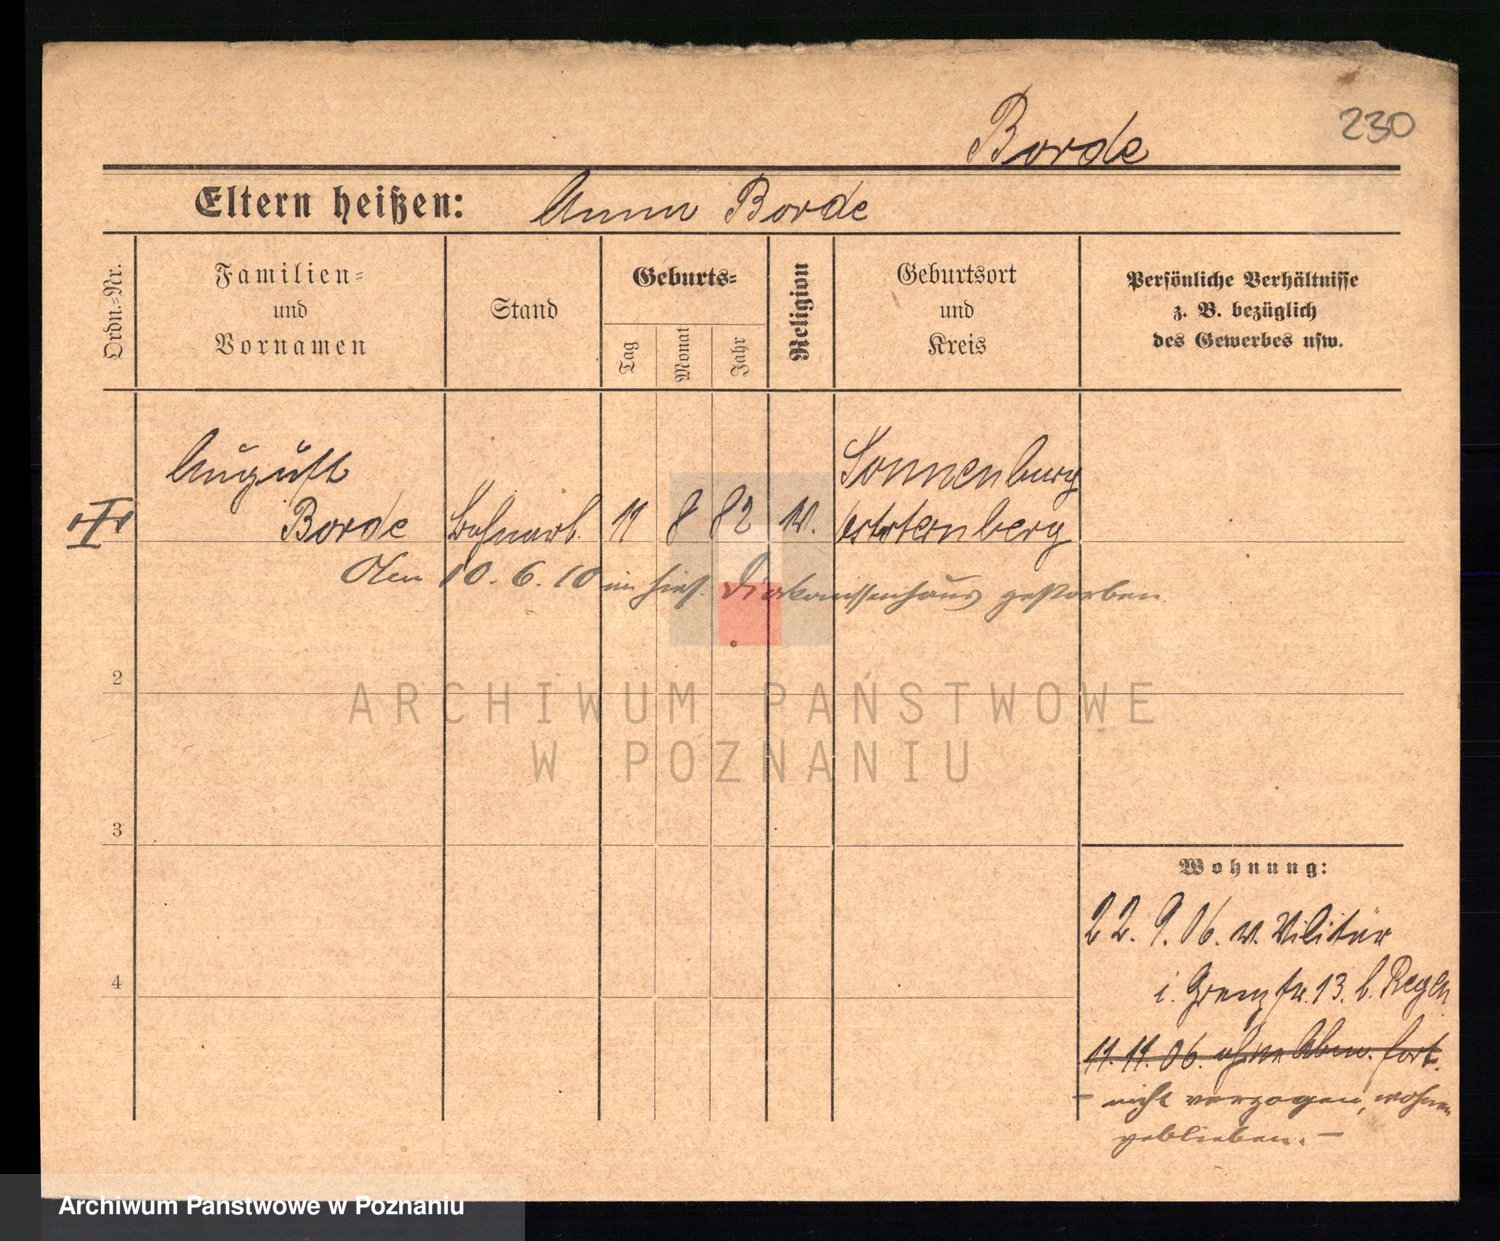 230
Borde
Eltern heißen: Anna Borde
Ordn.-Nr.
Familien-
und
Vornamen
Stand
Geburts-
Tag
Monat
Jahr
Religion
Geburtsort
und
Kreis
Persönliche Verhältnisse
z. B. bezüglich
des Gewerbes usw.
August
Borde
11 8 82
Sonnenburg
Oststernberg
Den 10.6.10 im hies. Diakonissenhaus gestorben
2
ARCHIWUM PAŃSTWOWE
W POZNANIU
3
4
Wohnung:
22. 9. 06. v. Militär
i. 13. b.
11. 11. 06. ohne Abm. fort.
- nicht verzogen, wohnen
geblieben. -
Archiwum Państwowe w Poznaniu